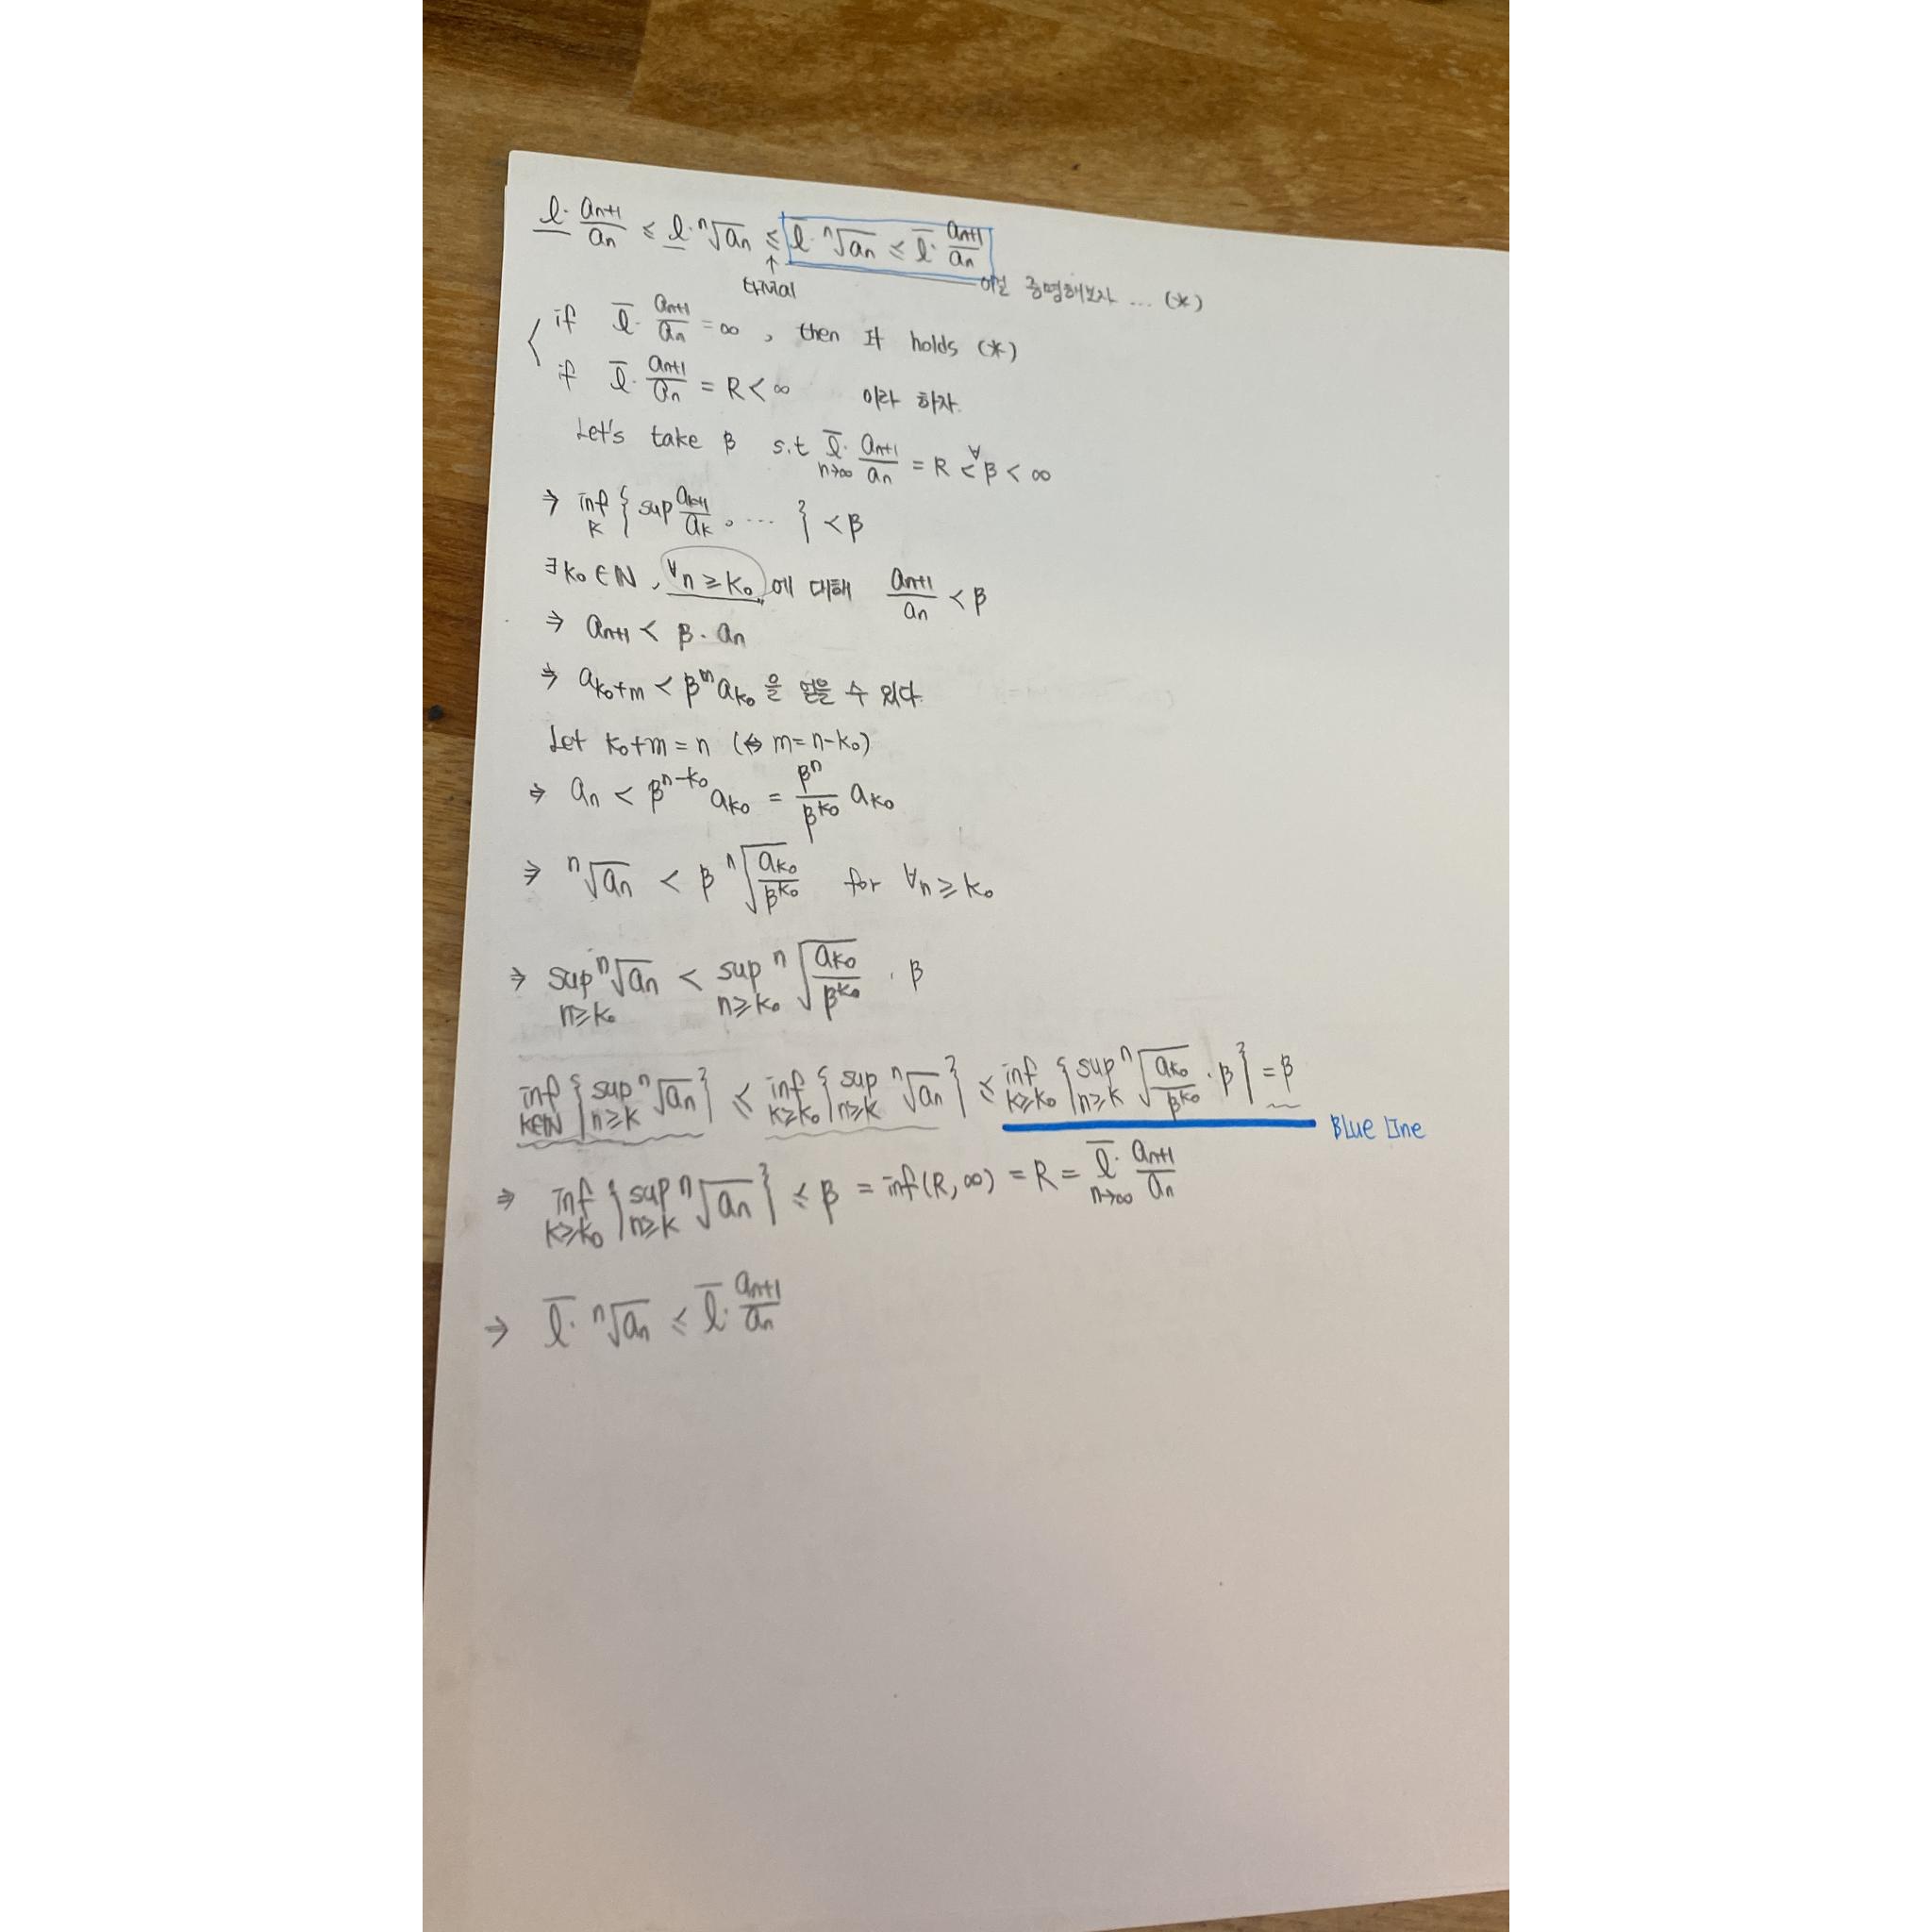 l̲· aₙ₊₁/aₙ ≤ l̲· ⁿ√aₙ ≤ l̅· ⁿ√aₙ ≤ l̅· aₙ₊₁/aₙ
↑
trivial 이걸 증명해보자 ... (*)
if l̅· aₙ₊₁/aₙ = ∞, then It holds (*)
if l̅· aₙ₊₁/aₙ = R < ∞ 이라 하자.
Let's take β s.t l̅·_{n→∞} aₙ₊₁/aₙ = R < ∀β < ∞
⇒ inf_{k} { sup a_{k+1}/a_k, ... } < β
∃k₀ ∈ ℕ, ∀n ≥ k₀ 에 대해 aₙ₊₁/aₙ < β
⇒ aₙ₊₁ < β · aₙ
⇒ a_{k₀+m} < β^m a_{k₀} 을 얻을 수 있다.
Let k₀+m = n (⇔ m = n-k₀)
⇒ aₙ < β^{n-k₀} a_{k₀} = β^n/β^{k₀} a_{k₀}
⇒ ⁿ√aₙ < β ⁿ√(a_{k₀}/β^{k₀}) for ∀n ≥ k₀
⇒ sup_{n≥k₀} ⁿ√aₙ < sup_{n≥k₀} ⁿ√(a_{k₀}/β^{k₀}) · β
inf_{k∈ℕ} { sup_{n≥k} ⁿ√aₙ } ≤ inf_{k≥k₀} { sup_{n≥k} ⁿ√aₙ } ≤ inf_{k≥k₀} { sup_{n≥k} ⁿ√(a_{k₀}/β^{k₀}) · β } = β
Blue Line
⇒ inf_{k≥k₀} { sup_{n≥k} ⁿ√aₙ } ≤ β = inf(R, ∞) = R = l̅·_{n→∞} aₙ₊₁/aₙ
⇒ l̅· ⁿ√aₙ ≤ l̅· aₙ₊₁/aₙ